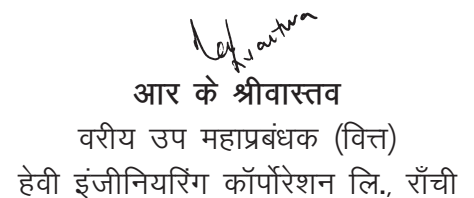 आर के श्रीवास्तव
वरीय उप महाप्रबंधक (वित्त)
हेवी इंजीनियरिंग कॉर्पोरेशन लि., राँची